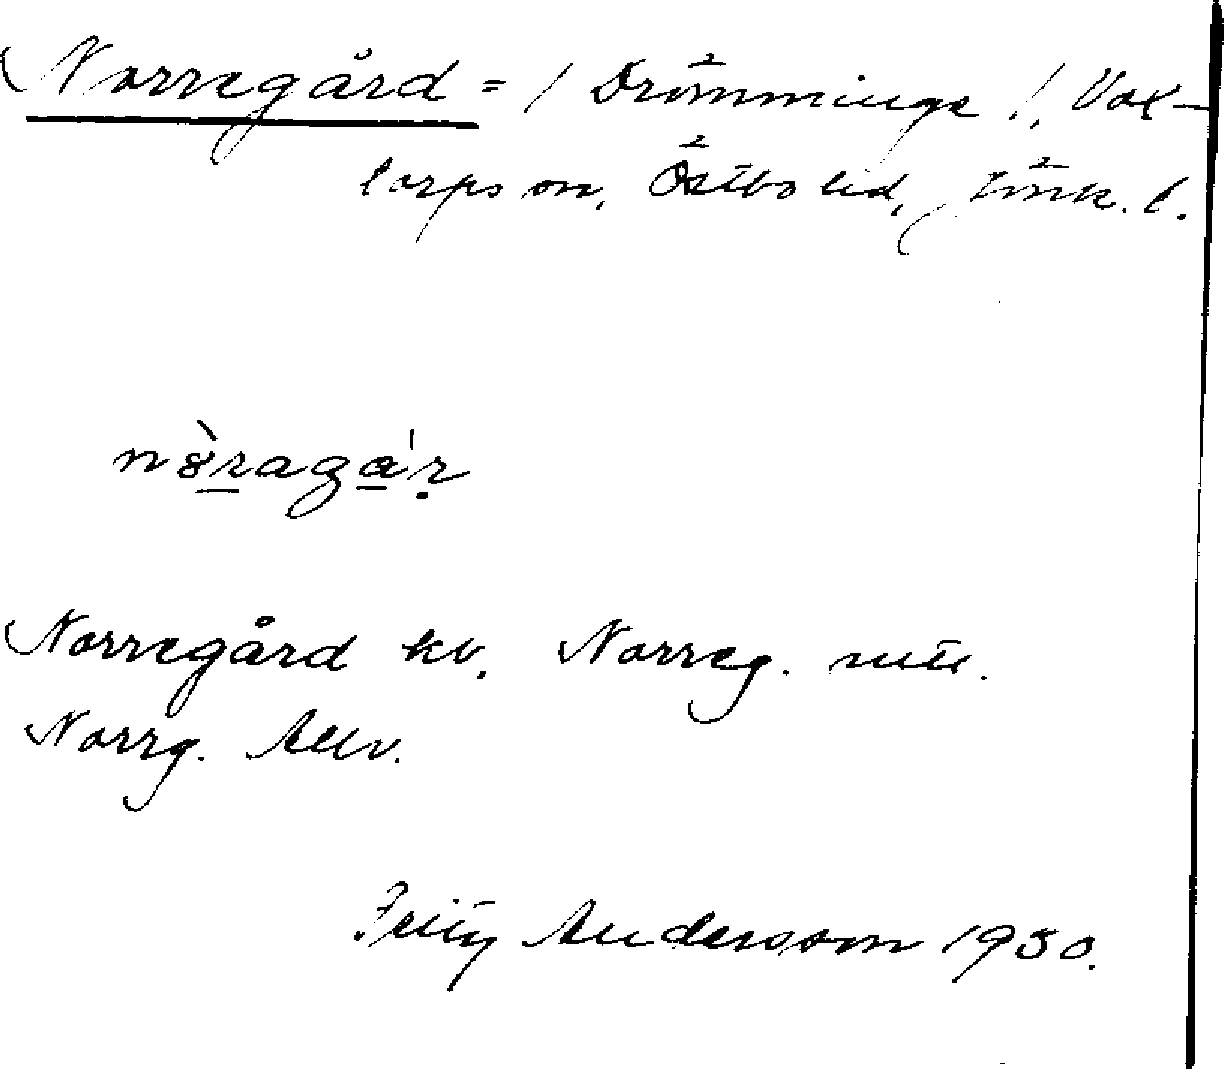 Norregård = / Drömminge /, Vox-
torps sn, Östbo hd, Jönk. l.
nòragár
Norregård kv. Norreg.
Norrg. Allv.
Fritz Andersson 1930.